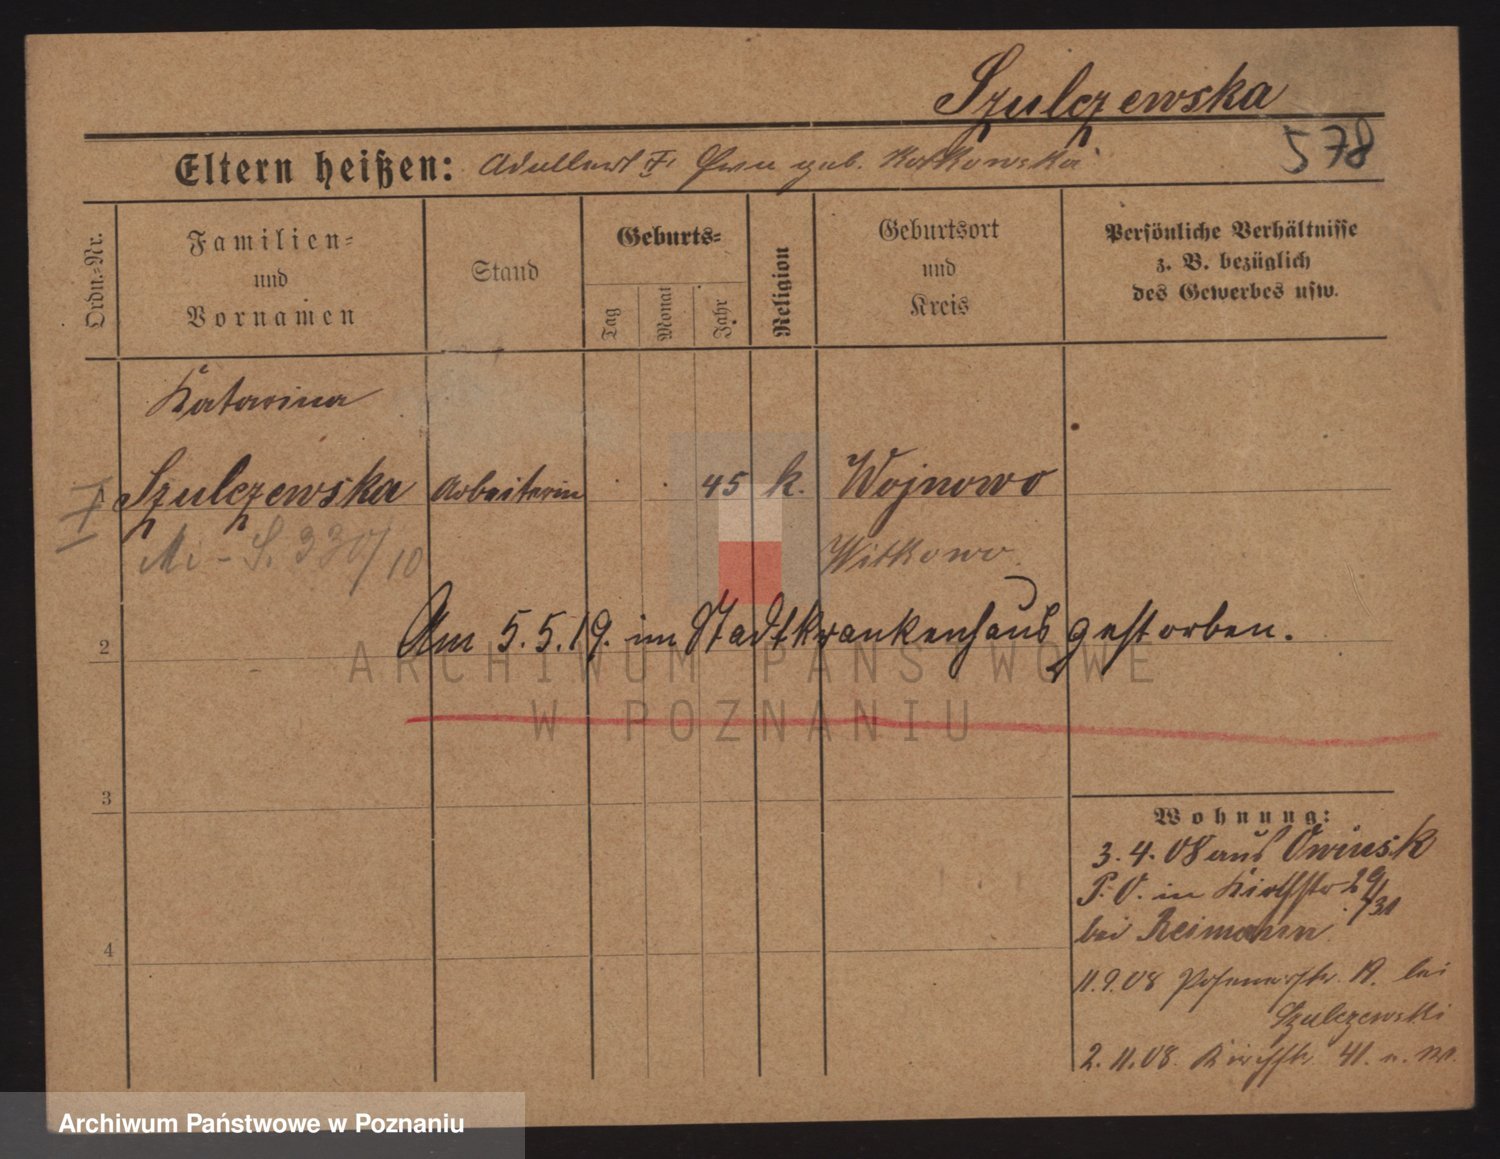 Szulczewska
578
Eltern heißen: geb.
Ordn.-Nr.
Familien-
und
Vornamen
Stand
Geburts-
Tag
Monat
Jahr
Religion
Geburtsort
und
Kreis
Persönliche Verhältnisse
z. B. bezüglich
des Gewerbes usw.
Katarina
Szulczewska Arbeiterin 45 k. Wojnowo
Witkowo
Am 5.5.19. im Stadtkrankenhaus gestorben.
2
ARCHIWUM PAŃSTWOWE
W POZNANIU
3
4
Wohnung:
3.4.08 aus Owinsk
P. O. in 29/31
bei Reimann
11.9.08 bei
Szulczewski
2.11.08. 41.
Archiwum Państwowe w Poznaniu